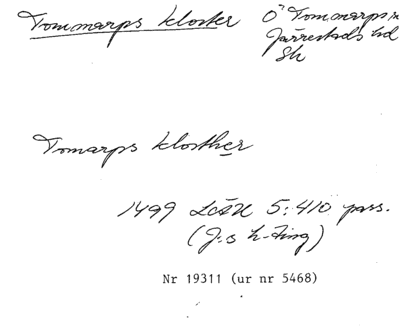 Tommarps kloster Ö Tommarps sn
Järrestads hd
Sk
Tomarps klosther
1499 LÄU 5:410 pass.
(J:s h-ting)
Nr 19311 (ur nr 5468)